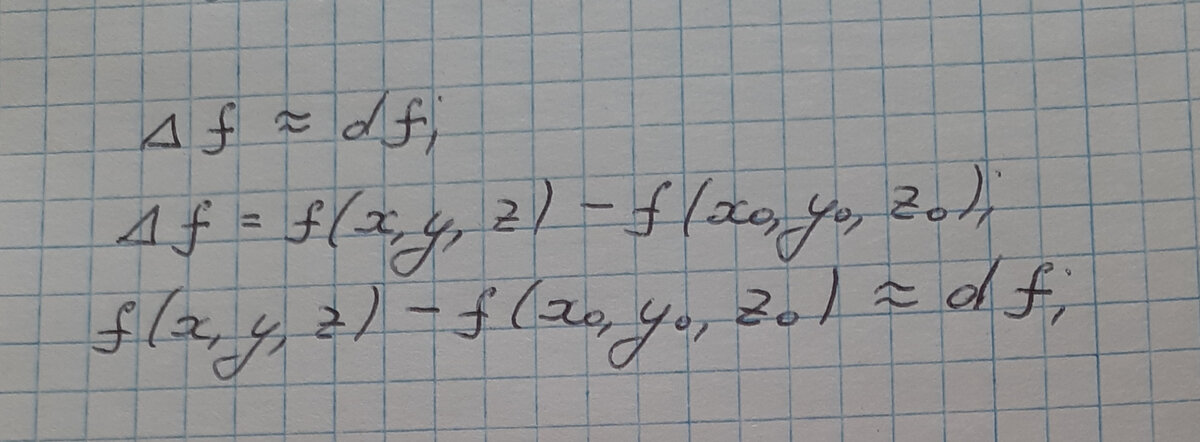 Δ f ≈ d f;
Δ f = f(x, y, z) − f(x₀, y₀, z₀);
f(x, y, z) − f(x₀, y₀, z₀) ≈ d f;